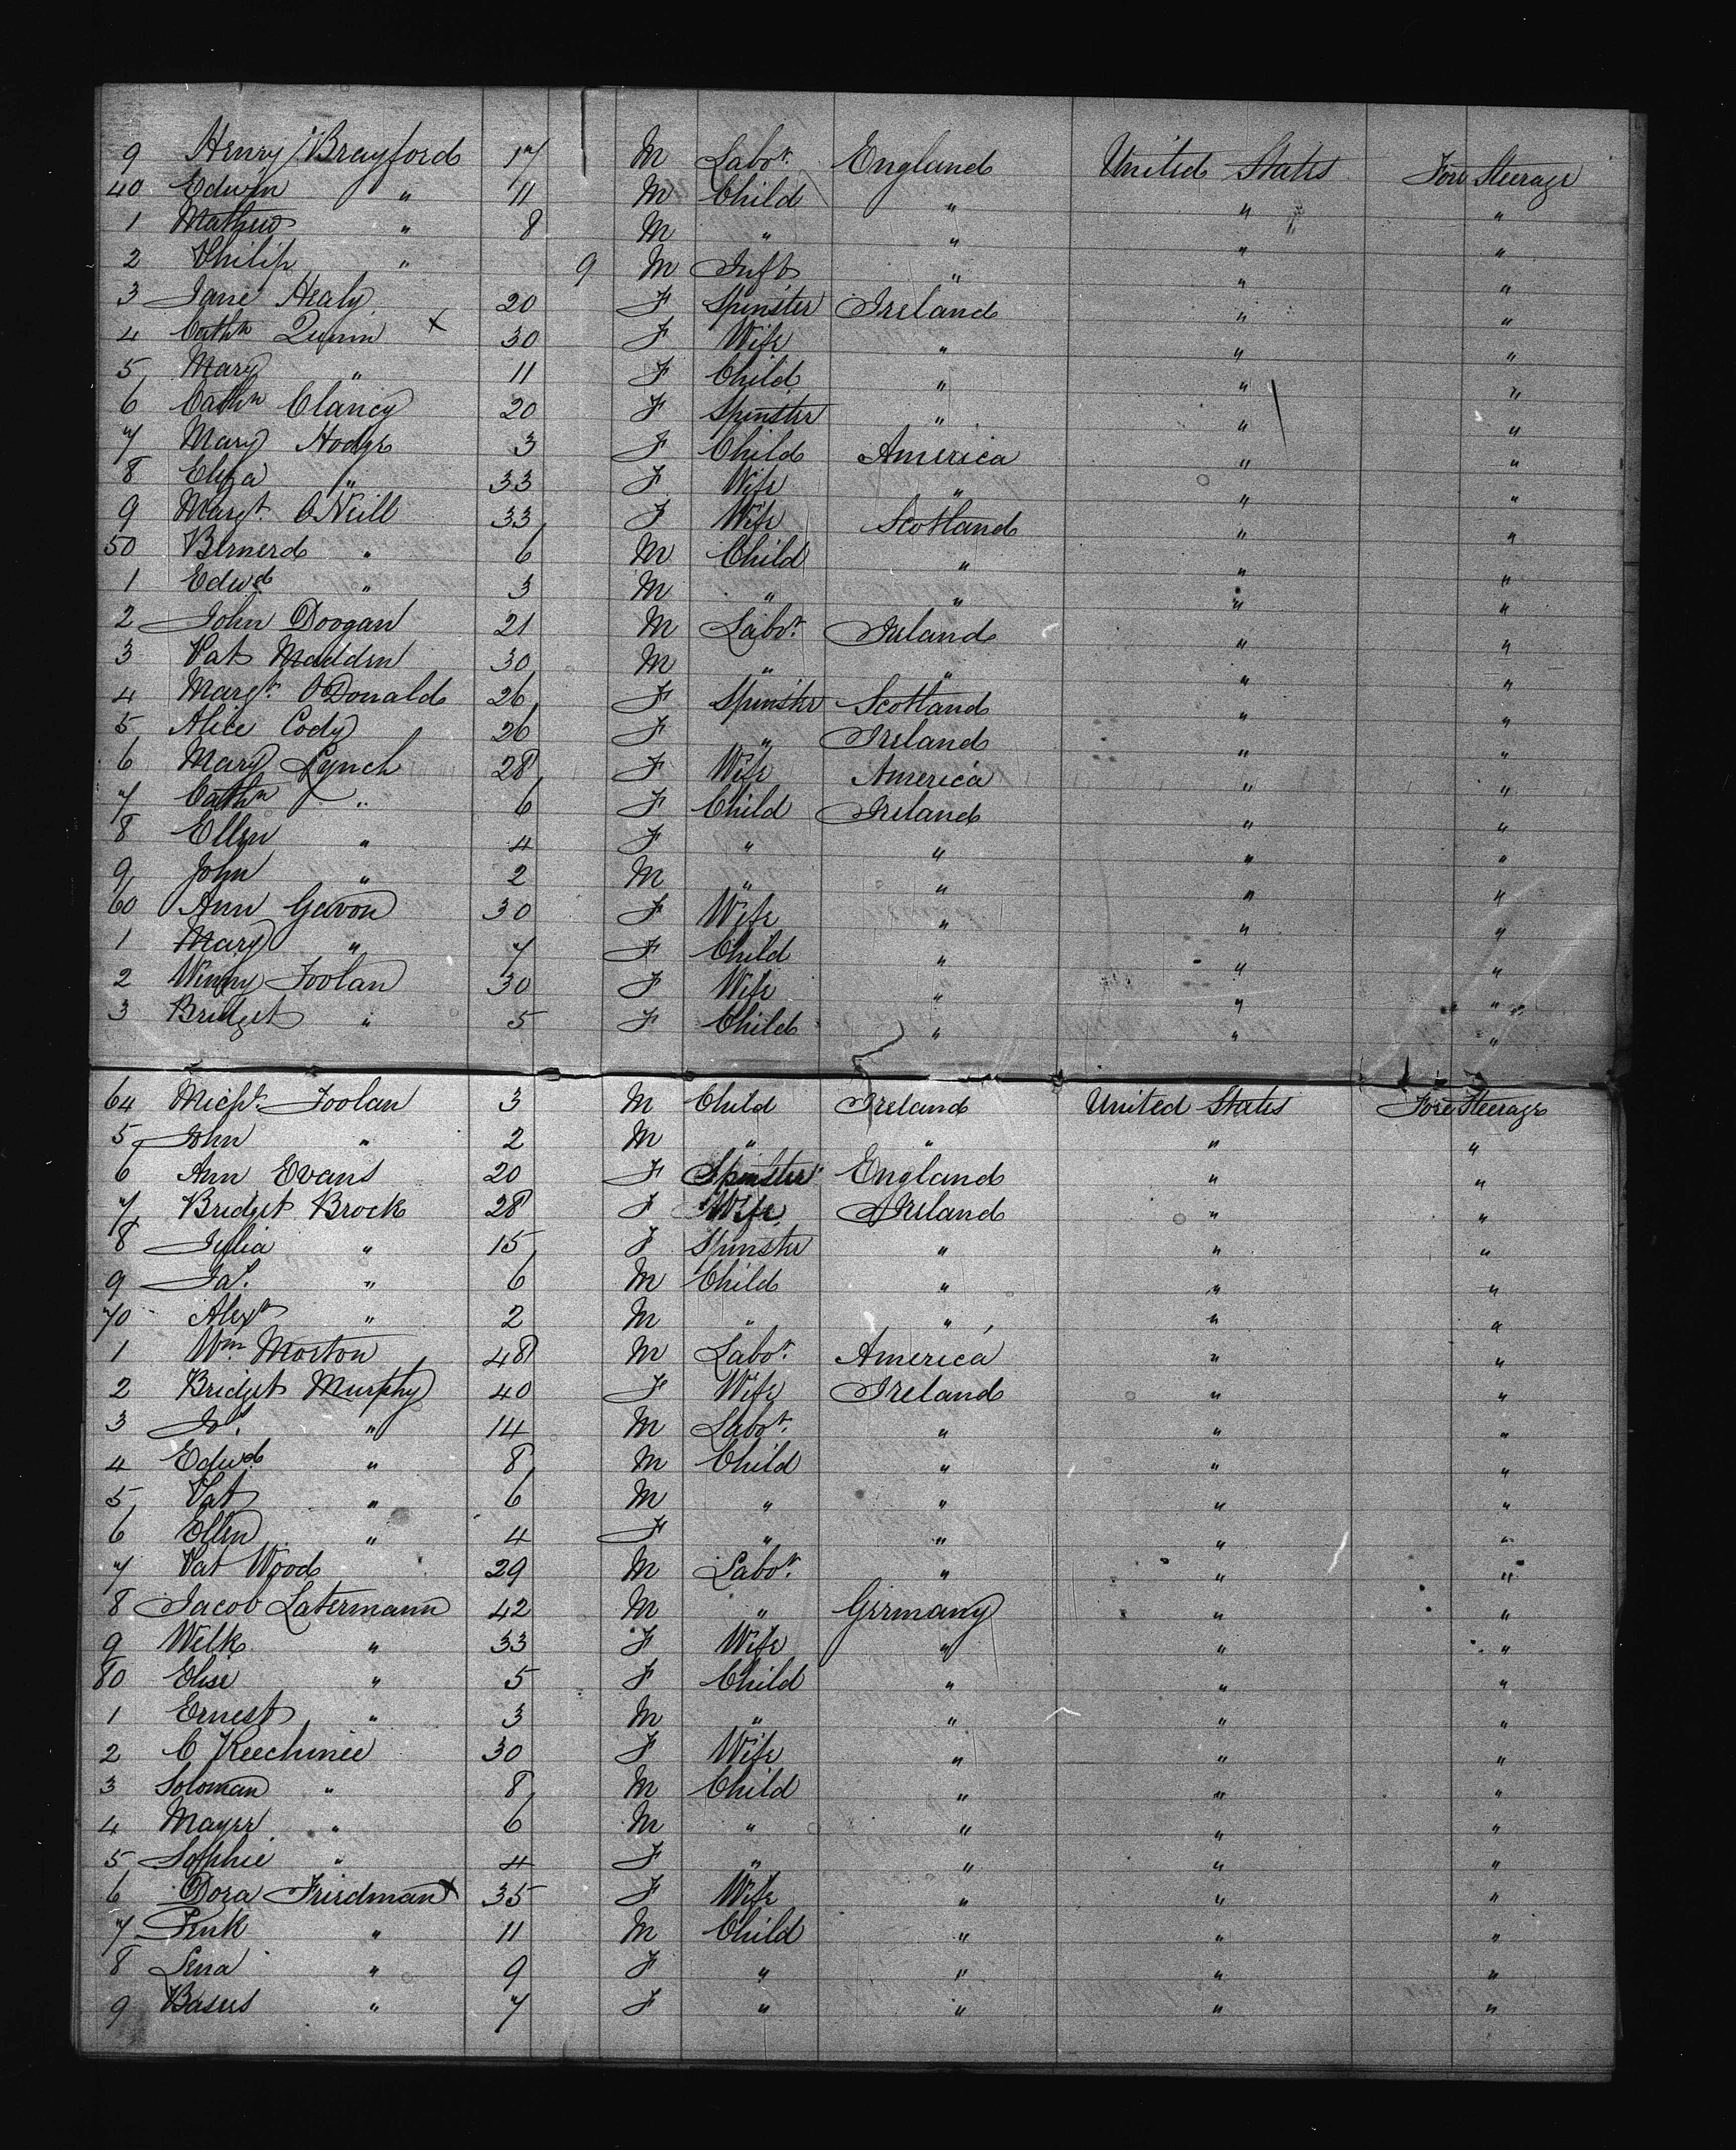 9 Henry Brayford 17 M Labor. England United States Fore Steerage
40 Edwin " 11 M Child " " "
1 Mathew " 8 M " " " "
2 Philip " 9 M Inft " " "
3 Jane Healy 20 F Spinster Ireland " "
4 Cathn Quinn x 30 F Wife " " "
5 Mary " 11 F Child " " "
6 Cathn Clancy 20 F Spinster " " "
7 Mary Hodge 3 F Child America " "
8 Eliza " 33 F Wife " " "
9 Margt. O'Neill 33 F Wife Scotland " "
50 Bernerd " 6 M Child " " "
1 Edwd " 3 M " " " "
2 John Doogan 21 M Labor. Ireland " "
3 Pat Madden 30 M " " " "
4 Margt. O'Donald 26 F Spinster Scotland " "
5 Alice Cody 26 F " Ireland " "
6 Mary Lynch 28 F Wife America " "
7 Cathn " 6 F Child Ireland " "
8 Ellen " 4 F " " " "
9 John " 2 M " " " "
60 Ann Gavon 30 F Wife " " "
1 Mary " 7 F Child " " "
2 Winny Foolan 30 F Wife " " "
3 Bridget " 5 F Child " " "
64 Michl. Foolan 3 M Child Ireland United States Fore Steerage
5 John " 2 M " " " "
6 Ann Evans 20 F Spinster England " "
7 Bridget Brock 28 F Wife Ireland " "
8 Julia " 15 F Spinster " " "
9 Jas. " 6 M Child " " "
70 Alexr " 2 M " " " "
1 Wm. Morton 48 M Labor. America " "
2 Bridget Murphy 40 F Wife Ireland " "
3 " 14 M Labor. " " "
4 Edwd " 8 M Child " " "
5 Pat " 6 M " " " "
6 Ellen " 4 F " " " "
7 Pat Wood 29 M Labor. " " "
8 Jacob Latermann 42 M " Germany " "
9 Welk " 33 F Wife " " "
80 Elise " 5 F Child " " "
1 Ernest " 3 M " " " "
2 C Keechinee 30 F Wife " " "
3 Soloman " 8 M Child " " "
4 Mayer " 6 M " " " "
5 Sophie " 4 F " " " "
6 Dora Friedman x 35 F Wife " " "
7 " 11 M Child " " "
8 Lena " 9 F " " " "
9 " 7 F " " " "